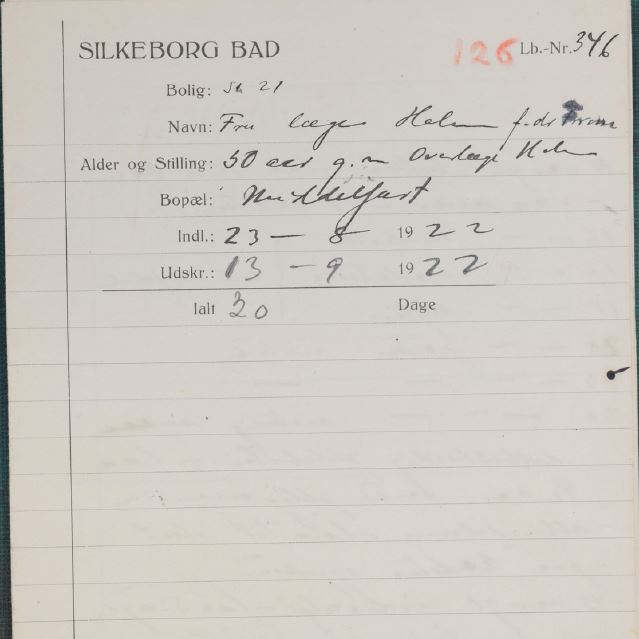 SILKEBORG BAD 126 Lb.-Nr. 346
Bolig: St 21
Navn: Fru læge Holm f.
Alder og Stilling: 50 aar g. m Overlæge Holm
Bopæl: Middelfart
Indl.: 23 - 8 1922
Udskr.: 13 - 9 1922
Ialt 20 Dage